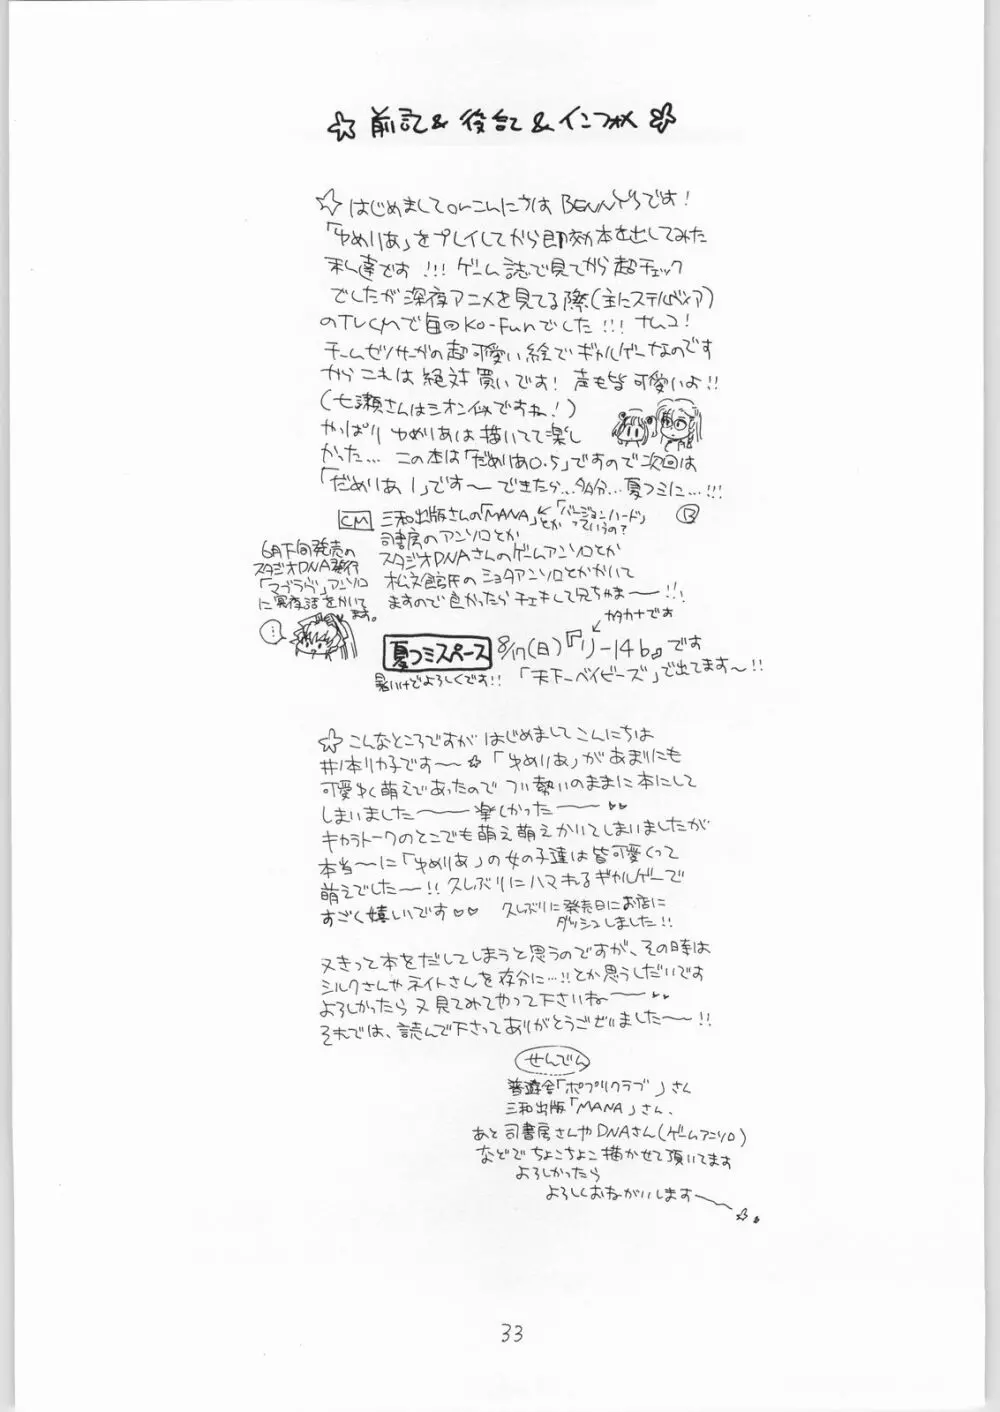 ☆前記&後記&インフォメ☆
☆はじめましてorこんにちは BENNY'Sです!
「ゆめりあ」をプレイしてから即効本を出してみた
私達です!!!ゲーム誌で見てから超チェック
でしたが深夜アニメを見てる際(主にステルヴィア)
のTVCMで毎回Ko-Funでした!!!ナムコ!
チームゼノサーガの超可愛い絵でギャルゲーなのです
からこれは絶対買いです!声も皆可愛いよ!!
(七瀬さんはシオン似ですね!)
やっぱりゆめりあは描いてて楽し
かった…この本は「だめりあ0.5」ですので次回は
「だめりあ1」です〜できたら…多分…夏コミに…!!!
CM 三和出版さんの「MANA」とか ←「バージョンハード」っていうの?
司書房のアンソロとか
スタジオDNAさんのゲームアンソロとか
松文館氏のショタアンソロとかかいて
ますので良かったらチェキして兄ちゃま〜!!!
6月下旬発売の
スタジオDNA発行
「マブラヴ」アンソロ
に冥夜話をかいて
ます。
…
カタカナです
夏コミスペース 8/17(日)『リ-14b』です
暑いけどよろしくです!! 「天下一ベイビーズ」で出てます〜!!
☆こんなところですがはじめましてこんにちは
井ノ本リカ子です〜☆「ゆめりあ」があまりにも
可愛ゆく萌えであったのでつい勢いのままに本にして
しまいました〜楽しかった〜♥♥
キャラトークのとこでも萌え萌えかいてしまいましたが
本当〜に「ゆめりあ」の女の子達は皆可愛くって
萌えでした〜!!久しぶりにハマれるギャルゲーで
すごく嬉しいです♥♥ 久しぶりに発売日にお店に
ダッシュしました!!
又きっと本をだしてしまうと思うのですが、その時は
シルクさんやネイトさんを存分に…!!とか思うしだいです
よろしかったら又見てみてやって下さいね〜♥♥
それでは、読んで下さってありがとうございました〜!!
せんでん
普遊舎「ポプリクラブ」さん
三和出版「MANA」さん、
あと司書房さんやDNAさん(ゲームアンソロ)
などでちょこちょこ描かせて頂いてます
よろしかったら
よろしくおねがいします〜☆。
33